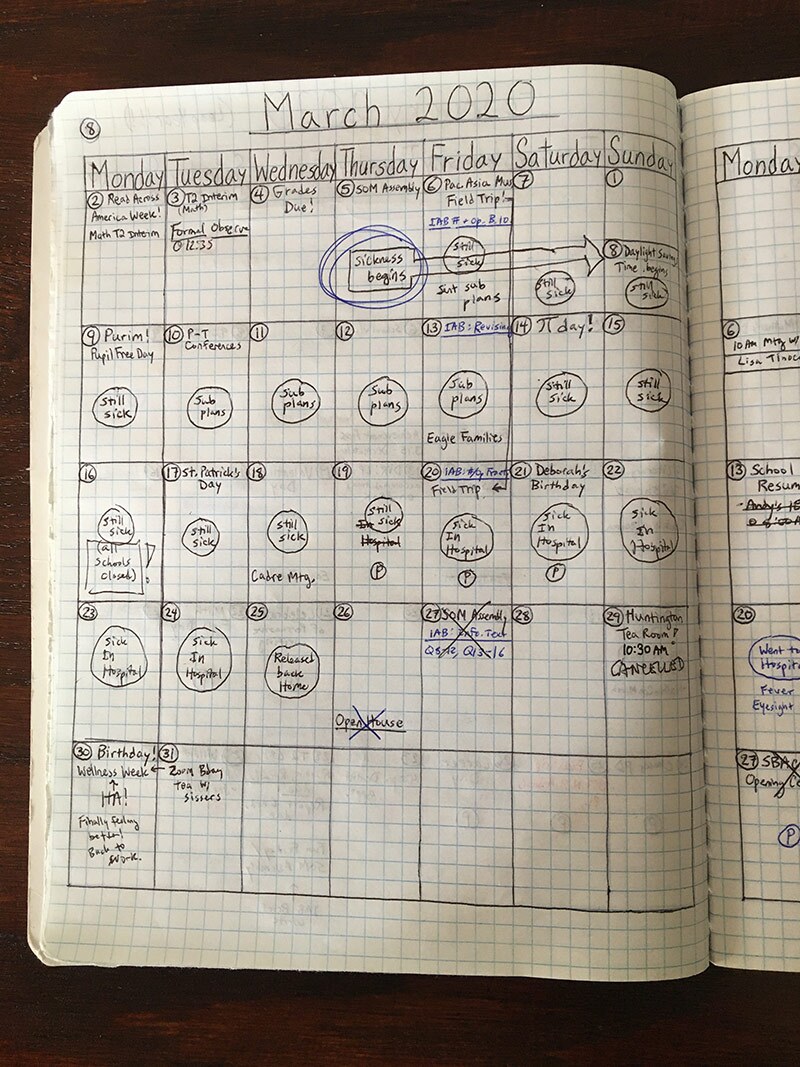 8
March 2020
Monday Tuesday Wednesday Thursday Friday Saturday Sunday
2 Read Across
America Week!
Math T2 Interim
3 T2 Interim
(Math)
Formal Observe
@ 12:35
4 Grades
Due!
5 SOM Assembly
Sickness
begins
6 Pac Asia Mus
Field Trip!
IAB # + Op. B. 10
Still
sick
Sent sub
plans
7
Still
sick
1
8 Daylight Saving
Time begins
Still
sick
9 Purim!
Pupil Free Day
Still
sick
10 P-T
Conferences
Sub
plans
11
Sub
plans
12
Sub
plans
13 IAB: Revising
Sub
plans
Eagle Families
14 π day!
Still
sick
15
Still
sick
16
Still
sick
(all
schools
closed)!
17 St. Patrick's
Day
Still
sick
18
Still
sick
Cadre Mtg.
19
Still
sick
In
Hospital
P
20 IAB:
Field Trip
Sick
In
Hospital
P
21 Deborah's
Birthday
Sick
In
Hospital
P
22
Sick
In
Hospital
23
Sick
In
Hospital
24
Sick
In
Hospital
25
Released
back
Home
26
Open House
27 SOM Assembly
IAB: Info. Text
Q13-16
28
29 Huntington
Tea Room?
10:30 AM
CANCELLED
30 Birthday!
Wellness Week
HA!
Finally feeling
better!
Back to
work.
31
Zoom Bday
Tea w/
sissers
Monday
6
10 AM Mtg w/
Lisa
13 School
Resum
Andy's
20
Went to
Hospit
Fever
Eyesight
27 SBAC
Opening
P